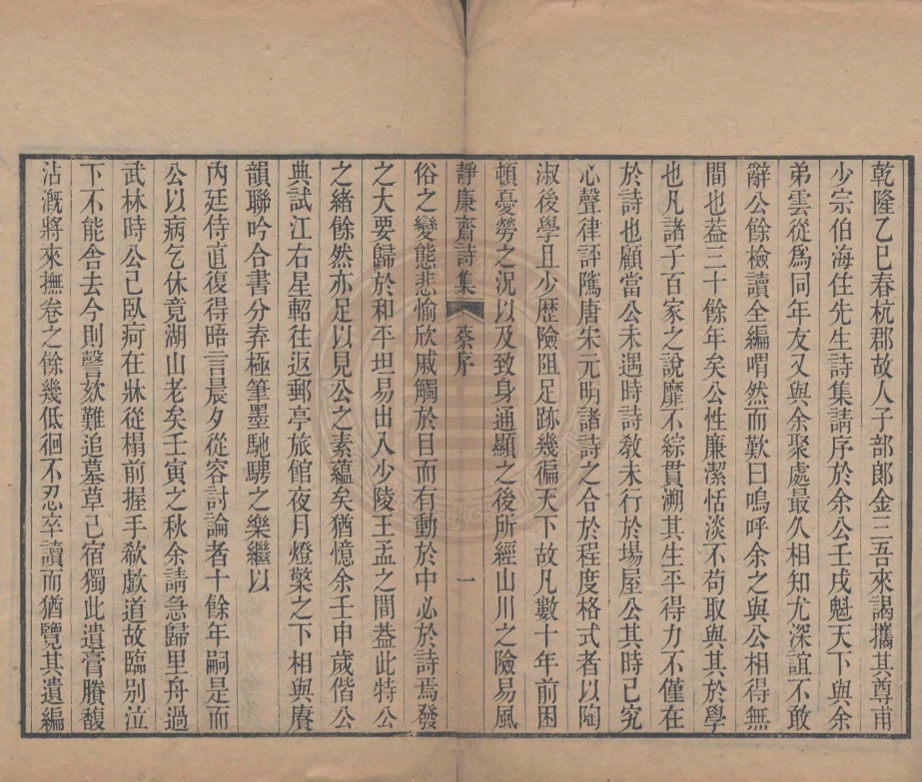 乾隆乙巳春杭郡故人子部郎金三吾來謁攜其尊甫
少宗伯海住先生詩集請序於余公壬戌魁天下與余
弟雲從爲同年友又與余聚處最久相知尤深誼不敢
辭公餘檢讀全編喟然而歎曰嗚呼余之與公相得無
間也葢三十餘年矣公性廉潔恬淡不苟取與其於學
也凡諸子百家之說靡不綜貫溯其生平得力不僅在
於詩也顧當公未遇時詩敎未行於場屋公其時已究
心聲律評隲唐宋元明諸詩之合於程度格式者以陶
淑後學且少歴險阻足跡幾徧天下故凡數十年前困
頓憂勞之況以及致身通顯之後所經山川之險易風
靜廉齋詩集 蔡序 一
俗之變態悲愉欣戚觸於目而有動於中必於詩焉發
之大要歸於和平坦易出入少陵王孟之間葢此特公
之緒餘然亦足以見公之素蘊矣猶憶余壬申歲偕公
典試江右星軺往返郵亭旅館夜月燈檠之下相與賡
韻聯吟合書分弆極筆墨馳騁之樂繼以
內廷侍直復得晤言晨夕從容討論者十餘年嗣是而
公以病乞休竟湖山老矣壬寅之秋余請急歸里舟過
武林時公已臥疴在牀從榻前握手欷歔道故臨别泣
下不能舍去今則謦欬難追墓草已宿獨此遺膏賸馥
沾漑將來撫卷之餘幾低徊不忍卒讀而猶覽其遺編